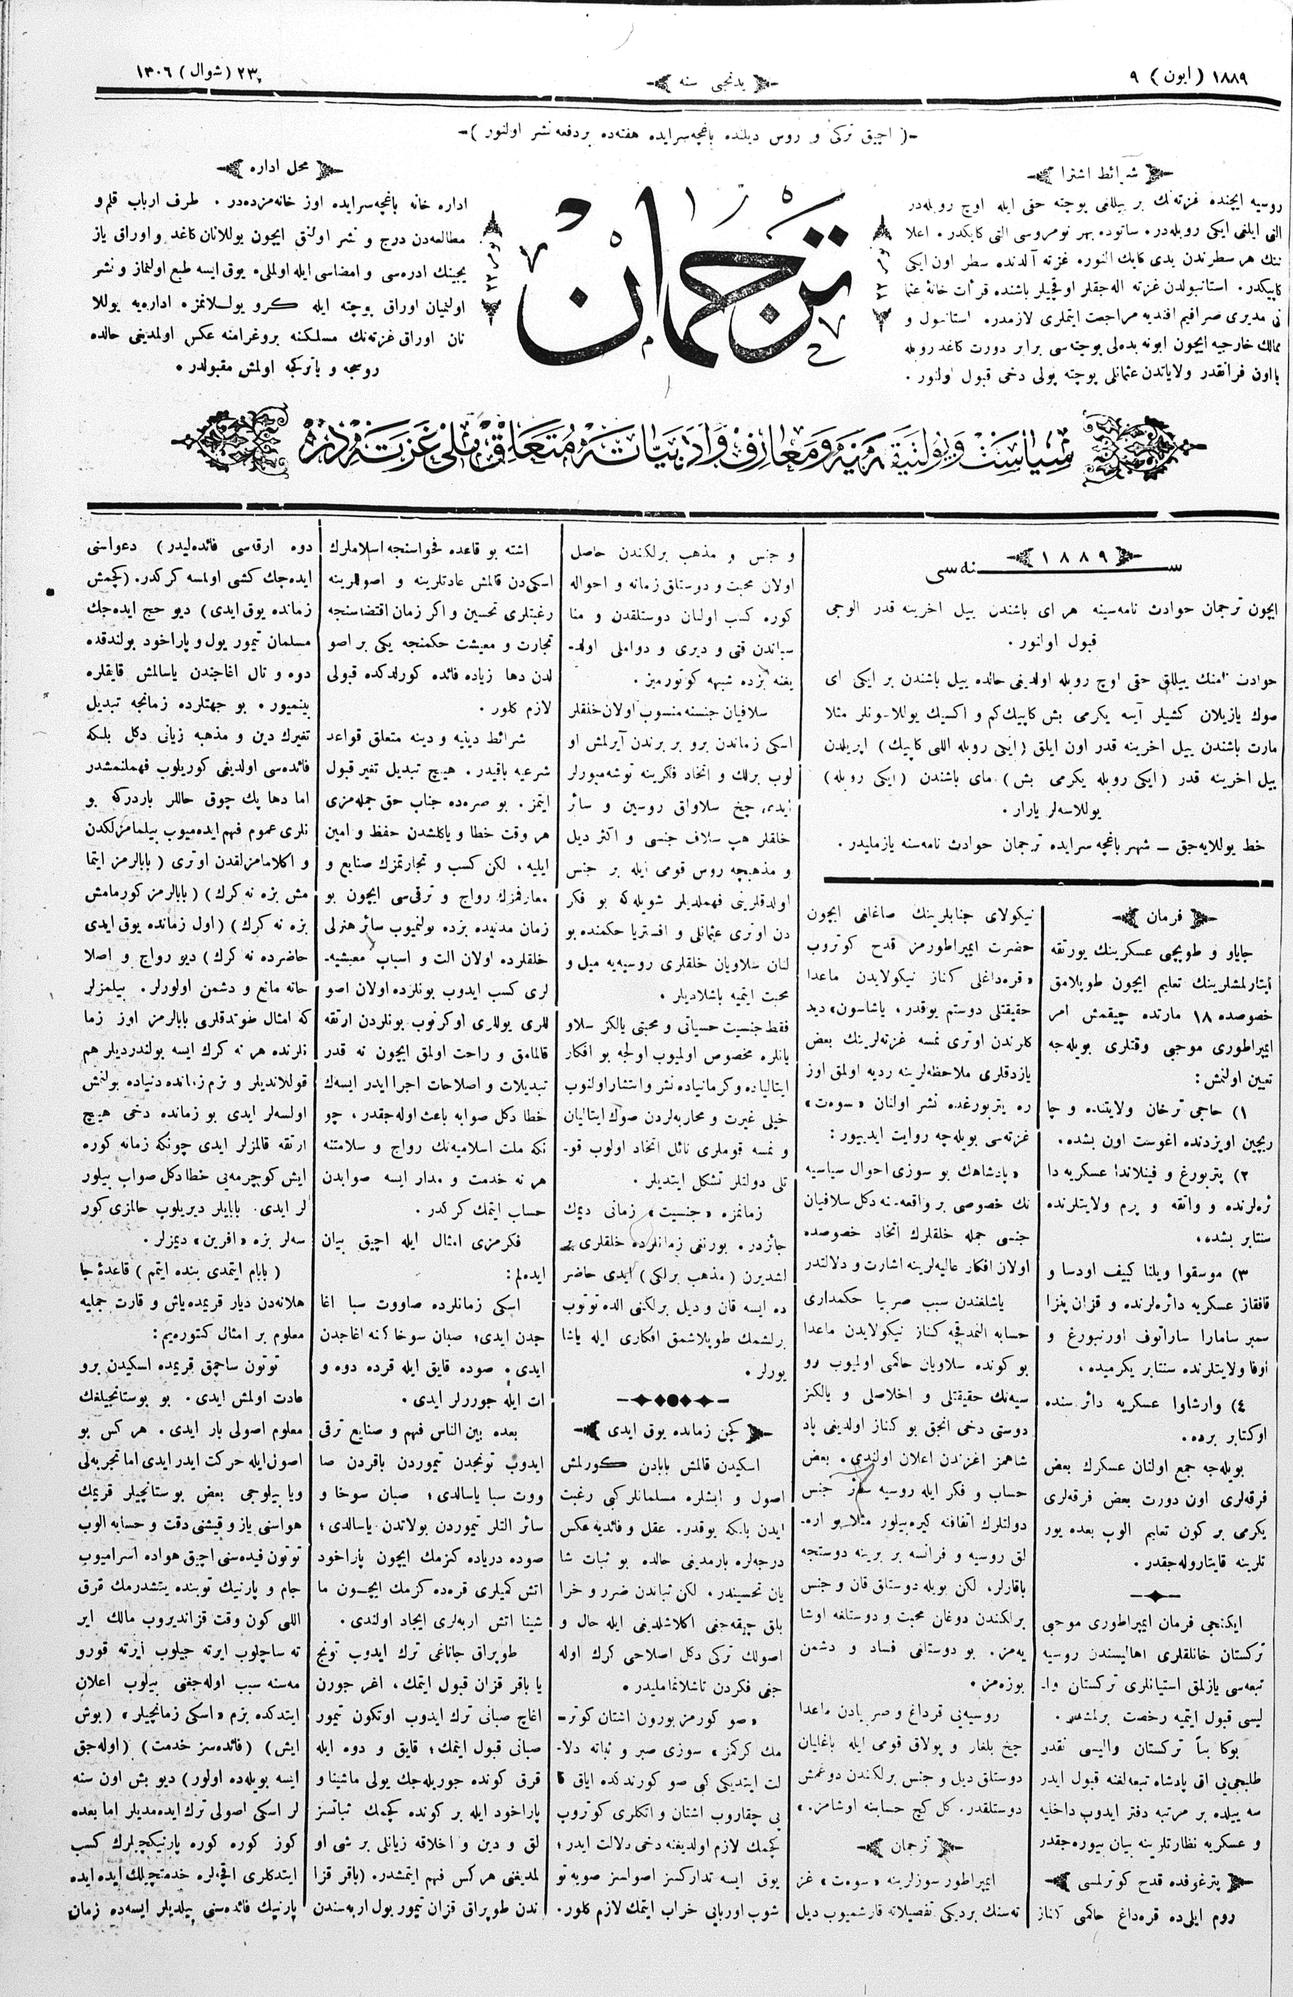 ١٨٨٩ (ایون) ٩
یدنجی سنه
٢٣ (شوال) ١٣٠٦
(اچیق ترکی و روس دیلنده باغچه‌سرایده هفته‌ده بردفعه نشر اولنور)
شرائط اشترا
روسیه ایچنده غزته‌نك بر ییللغی پوچته حقی ایله اوچ روبله‌در
التی ایلغی ایکی روبله‌در. ساتوده بهر نومروسی التی کاپکدر. اعلا
ننك هر سطرندن یدی کاپك النوره غزته آلدنده سطر اون ایکی
کاپیکدر. استانبولدن غزته اله‌جقلر اوقچیلر باشنده قرأت خانهٔ عثما
نی مدیری صرافیم افندیه مراجعت ایتملری لازمدر. استانبول و
ممالك خارجیه ایچون ابونه بده‌لی پوچته‌سی برابر دورت کاغد روبله
یااون فرانقدر ولایاتدن عثمانلی پوچته پولی دخی قبول اولنور.
ترجمان
نومر ٢٢
نومر ٢٢
محل اداره
اداره خانه باغچه‌سرایده اوز خانه‌مزده‌در. طرف ارباب قلم و
مطالعه‌دن درج و نشر اولنق ایچون یوللانان کاغد و اوراق یاز
یجینك ادره‌سی و امضاسی ایله اولملی. یوق ایسه طبع اولنماز و نشر
اولنمیان اوراق پوچته ایله کرو یوللانمزه اداره‌یه یوللا
نان اوراق غزته‌نك مسلکنه پروغرامنه عکس اولمدیغی حالده
روسچه و یاترکچه اولمش مقبولدر.
سیاست و پولتیقه مدنیه و معارف و ادبیاته متعلق ملی غزته در
١٨٨٩
سنه‌سی
ایچون ترجمان حوادث نامه‌سینه هر ای باشندن ییل اخرینه قدر الوجی
قبول اولنور.
حوادث نامه‌نك ییللق حقی اوچ روبله اولدیغی حالده ییل باشندن بر ایکی ای
صوك یازیلان کشیلر آیینه یکرمی بش کاپیك کم و اکسیك یوللا-ونلر مثلا
مارت باشندن ییل اخرینه قدر اون ایلق (ایکی روبله اللی کاپیك) اپریلدن
ییل اخرینه قدر (ایکی روبله یکرمی بش) مای باشندن (ایکی روبله)
یوللاسه‌لر یارار.
خط یوللایه‌جق — شهر باغچه‌سرایده ترجمان حوادث نامه‌سنه یازملیدر.
فرمان
جایاو و طوپجی عسکرینك یورتقه
ایتارلمشلرینك تعلیم ایچون طوپلامق
خصوصده ١٨ مارتده چیقمش امر
ایمپراطوری موجبی وقتلری بویله‌جه
تعیین اولنمش:
١) حاجی ترخان ولایتنده و چا
ریچین اویزدنده اغوست اون بشده.
٢) پتربورغ و فینلاندا عسکریه دا
ئره‌لرنده و واتقه و پرم ولایتلرنده
سنتابر بشده.
٣) موسقوا ویلنا کییف اودسا و
قافقاز عسکریه دائره‌لرنده و قزان پنزا
سمبر سامارا ساراتوف اورنبورغ و
اوفا ولایتلرنده سنتابر یکرمیده.
٤) وارشاوا عسکریه دائر سنده
اوکتابر برده.
بویله‌جه جمع اولنان عسکرك بعض
فرقه‌لری اون دورت بعض فرقه‌لری
یکرمی بر کون تعلیم الوب بعده یور
تلرینه قایتاروله‌جقدر.
ایکنجی فرمان ایمپراطوری موجبی
ترکستان خانلقلری اهالیسندن روسیه
تبعه‌سی یازلمق استیانلری ترکستان وا-
لیسی قبول ایتمیه رخصت برلمشدر.
بوکا بناً ترکستان والیسی نقدر
طلبجی‌نی اق پادشاه تبعه‌لغنه قبول ایدر
سه ییلده بر مرتبه دفتر ایدوب داخلیه
و عسکریه نظارتلرینه بیان بیوره‌جقدر
پترغوفده قدح کوترلمسی
روم ایلی‌ده قره‌داغ حاکمی کناز
نیکولای جنابلرینك صاغلغی ایچون
حضرت ایمپراطورمز قدح کوتروب
«قره‌داغلی کناز نیکولایدن ماعدا
حقیقتلی دوستم یوقدر، یاشاسون» دید
کلرندن اوتری نمسه غزته‌لرینك بعض
یازدقلری ملاحظه‌لرینه ردیه اولمق اوز
ره پتربورغده نشر اولنان «سوه‌ت»
غزته‌سی بویله‌چه روایت ایدییور:
«پادشاهك بو سوزی احوال سیاسیه
نك خصوصی بر واقعه‌سنه دکل سلافیان
جنسی جمله خلقلرك اتحاد خصوصده
اولان افکار عالیه‌لرینه اشارت و دلالتدر
یاشلغندن سبب صربیا حکمداری
حسابه النمدقچه کناز نیکولایدن ماعدا
بو کونده سلاویان حاکمی اولمیوب رو
سیه‌نك حقیقتلی و اخلاصلی و یالکز
دوستی دخی انجق بو کناز اولدیغی پاد
شاهمز اغزندن اعلان اولندی. بعض
حساب و فکر ایله روسیه سمز جنس
دولتلرك اتفاقنه کیره‌بیلور مثلا بو اره-
لق روسیه و فرانسه بر برینه دوستجه
باقارلر، لکن بویله دوستلق قان و جنس
برلکندن دوغان محبت و دوستلغه اوشا
یه‌مز. بو دوستلغی فساد و دشمن
بوزه‌مز.
روسیه‌نی قرداغ و صربیادن ماعدا
چخ بلغار و پولاق قومی ایله باغلایان
دوستلق دیل و جنس برلکندن دوغمش
دوستلقدر. کل کچ حسابنه اوشامز.»
ترجمان
ایمپراطور سوزلرینه «سوه‌ت» غز
ته‌سنك بردیکی تفصیلاته قارشمیوب دیل
و جنس و مذهب برلکندن حاصل
اولان محبت و دوستلق زمانه و احواله
کوره کسب اولنان دوستلقدن و منا
سباتدن قتی و دیری و دواملی اولد-
یغنه بزده شبهه کوتورمیز.
سلافیان جنسنه منسوب اولان خلقلر
اسکی زماندن برو بر برندن آیرلمش او
لوب برلك و اتحاد فکرینه توشه‌میورلر
ایدی چخ سلاواق روسین و سائر
خلقلر هپ سلاف جنسی و اکثر دیل
و مذهبچه روس قومی ایله بر جنس
اولدقلرینی فهملدیلر شویله‌که بو فکر
دن اوتری عثمانلی و افستریا حکمنده بو
لنان سلاویان خلقلری روسیه‌یه میل و
محبت ایتمیه باشلادیلر.
فقط جنسیت حسیاتی و محبتی یالکز سلاو
یانلره مخصوص اولمیوب اولجه بو افکار
ایتالیاده و کرمانیاده نشر و انتشار اولنوب
خیلی غیرت و محاربه‌لردن صوك ایتالیان
و نمسه قوملری نائل اتحاد اولوب قو-
تلی دولتلر تشکل ایتدیلر.
زمانمزه «جنسیت» زمانی دیمك
جائزدر. بورنغی زمانلرده خلقلری بر
لشدیرن (مذهب برلکی) ایدی حاضر
ده ایسه قان و دیل برلکنی الده توتوب
برلشمك طوپلاشمق افکاری ایله یاشا
یورلر.
کچن زمانده یوق ایدی
اسکیدن قالمش بابادن کورلمش
اصول و ایشلره مسلمانلرکبی رغبت
ایدن باشکه یوقدر. عقل و فائدیه عکس
درجه‌لره بارمدیغی حالده بو ثبات شا
یان تحسیندر. لکن ثباتدن ضرر و خرا
بلق چیقه‌جغی اکلاشلدیغی ایله حال و
اصولك ترکی دکل اصلاحی کرك اوله
جغی فکردن تاشلانمامالیدر.
«صو کورمز بورون اشتان کوتر-
مك کرکمز» سوزی صبر و ثباته دلا-
لت ایتدیکی کبی صو کورندکده ایاق قا
بی چقاروب اشتان و اتکلری کوتروب
کچمك لازم اولدیغنه دخی دلالت ایدر؛
یوق ایسه تدارکسز اصولسز صویه تو
شوب اوربایی خراب ایتمك لازم کلور.
اشته بو قاعده فحواسنجه اسلاملرك
اسکی‌دن قالمش عادتلرینه و اصوللرینه
رغبتلری تحسین و اکر زمان اقتضاسنجه
تجارت و معیشت حکمنجه یکی بر اصو
لدن دها زیاده فائده کورلدکده قبولی
لازم کلور.
شرائط دینیه و دینه متعلق قواعد
شرعیه باقیدر. هیچ تبدیل تغیر قبول
ایتمز. بو صره‌ده جناب حق جمله‌مزی
هر وقت خطا و یاکلشدن حفظ و امین
ایلیه. لکن کسب و تجارتمزك صنایع و
معارفمزك رواج و ترقی‌سی ایچون بو
زمان مدنیده بزده بولنمیوب سائر هنرلی
خلقلرده اولان الت و اسباب معیشیه-
لری کسب ایدوب بونلرده اولان اصو
للری یوللری اوکرنوب بونلردن ارتقه
قالمامق و راحت اولمق ایچون نه قدر
تبدیلات و اصلاحات اجرا ایدر ایسه‌ك
خطا دکل صوابه باعث اوله‌جقدر، چو
نکه ملت اسلامیه‌نك رواج و سلامتنه
هر نه خدمت و مدار ایسه صوابدن
حساب ایتمك کرکدر.
فکرمزی امثال ایله اچیق بیان
ایده‌لم:
اسکی زمانلرده صاووت سبا اغا
جدن ایدی؛ صبان سوخا کنه اغاجدن
ایدی. صوده قایق ایله قرده دوه و
ات ایله جوررلر ایدی.
بعده بین الناس فهم و صنایع ترقی
ایدوب تونجدن تیموردن باقردن صا
ووت سبا یاسالدی؛ صبان سوخا و
سائر التلر تیموردن بولاتدن یاسالدی؛
صوده دریاده کزمك ایچون پاراخود
اتش کمیلری قره‌ده کزمك ایچون ما
شینا اتش اربه‌لری ایجاد اولندی.
طوپراق جاناغی ترك ایدوب تونج
یا باقر قزان قبول ایتمك، اغر جورن
اغاچ صبانی ترك ایدوب اوتکون تیمور
صبانی قبول ایتمك؛ قایق و دوه ایله
قرق کونده جوریله‌جك یولی ماشینا و
پاراخود ایله بر کونده کچمك ثباتسز
لق و دین و اخلاقه زیانلی بر شی او
لمدیغنی هرکس فهم ایتمشدر. (باقر قزا
ندن طوپراق قزان تیمور یول اربه‌سندن
دوه ارقه‌سی فائده‌لیدر) دعواسنی
ایده‌جك کشی اولمسه کرکدر. (کچمش
زمانده یوق ایدی) دیو حج ایده‌جك
مسلمان تیمور یول و پاراخود بولندقده
دوه و تال اغاجندن یاسالمش قایقلره
بینمیور. بو جهتلرده زمانجه تبدیل
تغیرك دین و مذهبه زیانی دکل بلکه
فائده‌سی اولدیغی کوریلوب فهملنمشدر
اما دها بك چوق حاللر باردرکه بو
نلری عموم فهم ایده‌میوب بیلمامزلکدن
و اکلامامزلقدن اوتری (بابالرمز ایتما
مش بزه نه کرك) (بابالرمز کورمامش
بزه نه کرك) (اول زمانده یوق ایدی
حاضرده نه کرك) دیو رواج و اصلا
حاته مانع و دشمن اولورلر. بیلمزلر
که امثال طوتدقلری بابالرمز اوز زما
نلرنده هر نه کرك ایسه بولندردیلر هم
قوللاندیلر و بزم زمانده دنیاده بولنمش
اولسه‌لر ایدی بو زمانده دخی هیچ
ارتقه قالمزلر ایدی چونکه زمانه کوره
ایش کوچرمه‌یی خطا دکل صواب بیلور
لر ایدی. بابایلر دیریلوب حالمزی کور
سه‌لر بزه «افرین» دیمزلر.
(بابام ایتمدی بنده ایتمم) قاعدهٔ جا
هلانه‌دن دیار قریمده یاش و قارت جمله‌یه
معلوم بر امثال کتوره‌یم:
توتون ساچمق قریمده اسکیدن برو
عادت اولمش ایدی. بو بوستانجیلغك
معلوم اصولی بار ایدی. هر کس بو
اصول ایله حرکت ایدر ایدی اما تجربه‌لی
ویا بیلوجی بعض بوستانچیلر قریمك
هواسنی یاز و قیشنی دقت و حسابه الوب
توتون فیده‌سنی اچیق هواده اسرامیوب
جام و پارنیك توبنده یتشدرمك قرق
اللی کون وقت قزاندیروب مالك ایر
ته ساچلوب ایرته جیلوب ایرته قورو
مه‌سنه سبب اوله‌جغنی بیلوب اعلان
ایتدکده بزم «اسکی زمانجیلر» (بوش
ایش) (فائده‌سز خدمت) (اوله‌جق
ایسه بویله‌ده اولور) دیو بش اون سنه
لر اسکی اصولی ترك ایده‌مدیلر اما بعده
کوز کوره کوره پارنیکچیلرك کسب
ایتدکلری اقچه‌لره خدمتچیلك ایده ایده
پارنیك فائده‌سنی بیلدیلر ایسه‌ده زمان